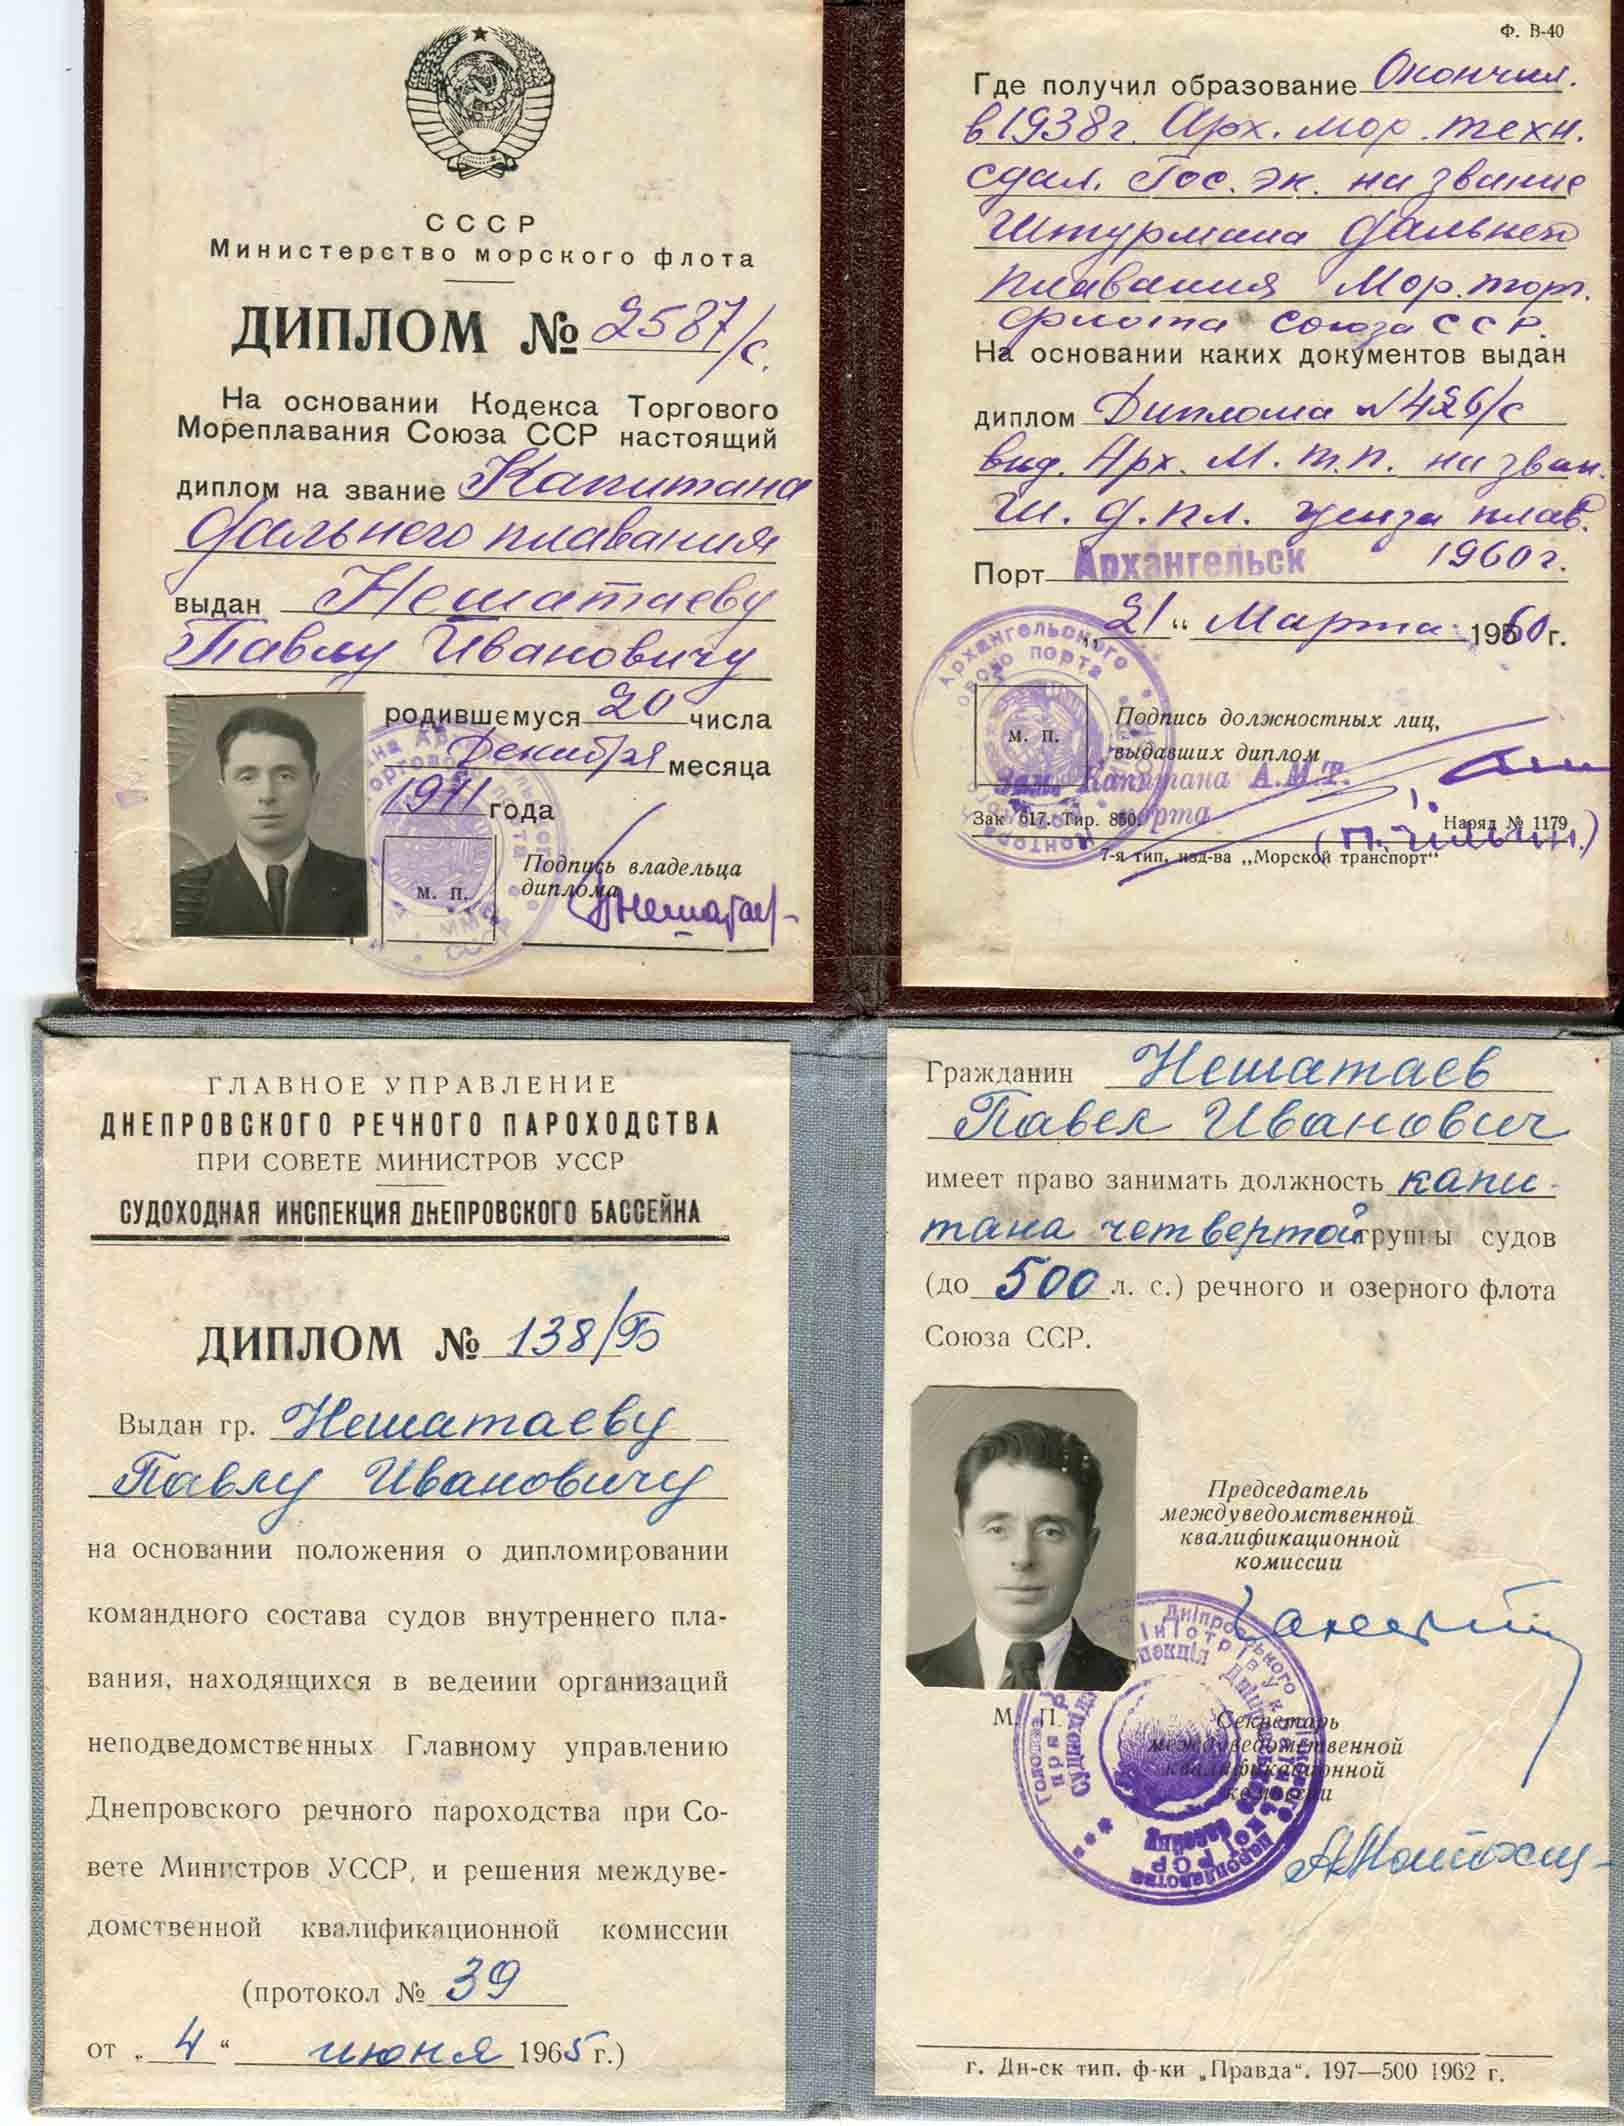 СССР
Министерство морского флота
ДИПЛОМ № 2587/с.
На основании Кодекса Торгового
Мореплавания Союза ССР настоящий
диплом на звание Капитана
дальнего плавания
выдан Нешатаеву
Павлу Ивановичу
родившемуся 20 числа
Декабря месяца
1911 года
Подпись владельца
диплома
м. п.
Ф. В-40
Где получил образование Окончил.
в 1938г. Арх. мор. техн.
сдал. Гос. эк. на звание
Штурмана дальнего
плавания Мор. торг.
флота Союза ССР.
На основании каких документов выдан
диплом Диплома №426/с
выд. Арх. М. т. п. на зван.
Ш. д. пл. ценза плав.
1960г.
Порт Архангельск
„21“ Марта 1960 г.
Подпись должностных лиц,
выдавших диплом
м. п.
Зам. Капитана А.М.Т.
порта
Зак 617. Тир. 850. Наряд № 1179
7-я тип. изд-ва „Морской транспорт“
ГЛАВНОЕ УПРАВЛЕНИЕ
ДНЕПРОВСКОГО РЕЧНОГО ПАРОХОДСТВА
ПРИ СОВЕТЕ МИНИСТРОВ УССР
СУДОХОДНАЯ ИНСПЕКЦИЯ ДНЕПРОВСКОГО БАССЕЙНА
ДИПЛОМ № 138/Б
Выдан гр. Нешатаеву
Павлу Ивановичу
на основании положения о дипломировании
командного состава судов внутреннего пла-
вания, находящихся в ведении организаций
неподведомственных Главному управлению
Днепровского речного пароходства при Со-
вете Министров УССР, и решения междуве-
домственной квалификационной комиссии
(протокол № 39
от „4“ июня 1965 г.)
Гражданин Нешатаев
Павел Иванович
имеет право занимать должность капи-
тана четвертой группы судов
(до 500 л. с.) речного и озерного флота
Союза ССР.
Председатель
междуведомственной
квалификационной
комиссии
М. П.
Секретарь
междуведомственной
квалификационной
комиссии
г. Дн-ск тип. ф-ки „Правда“. 197—500 1962 г.